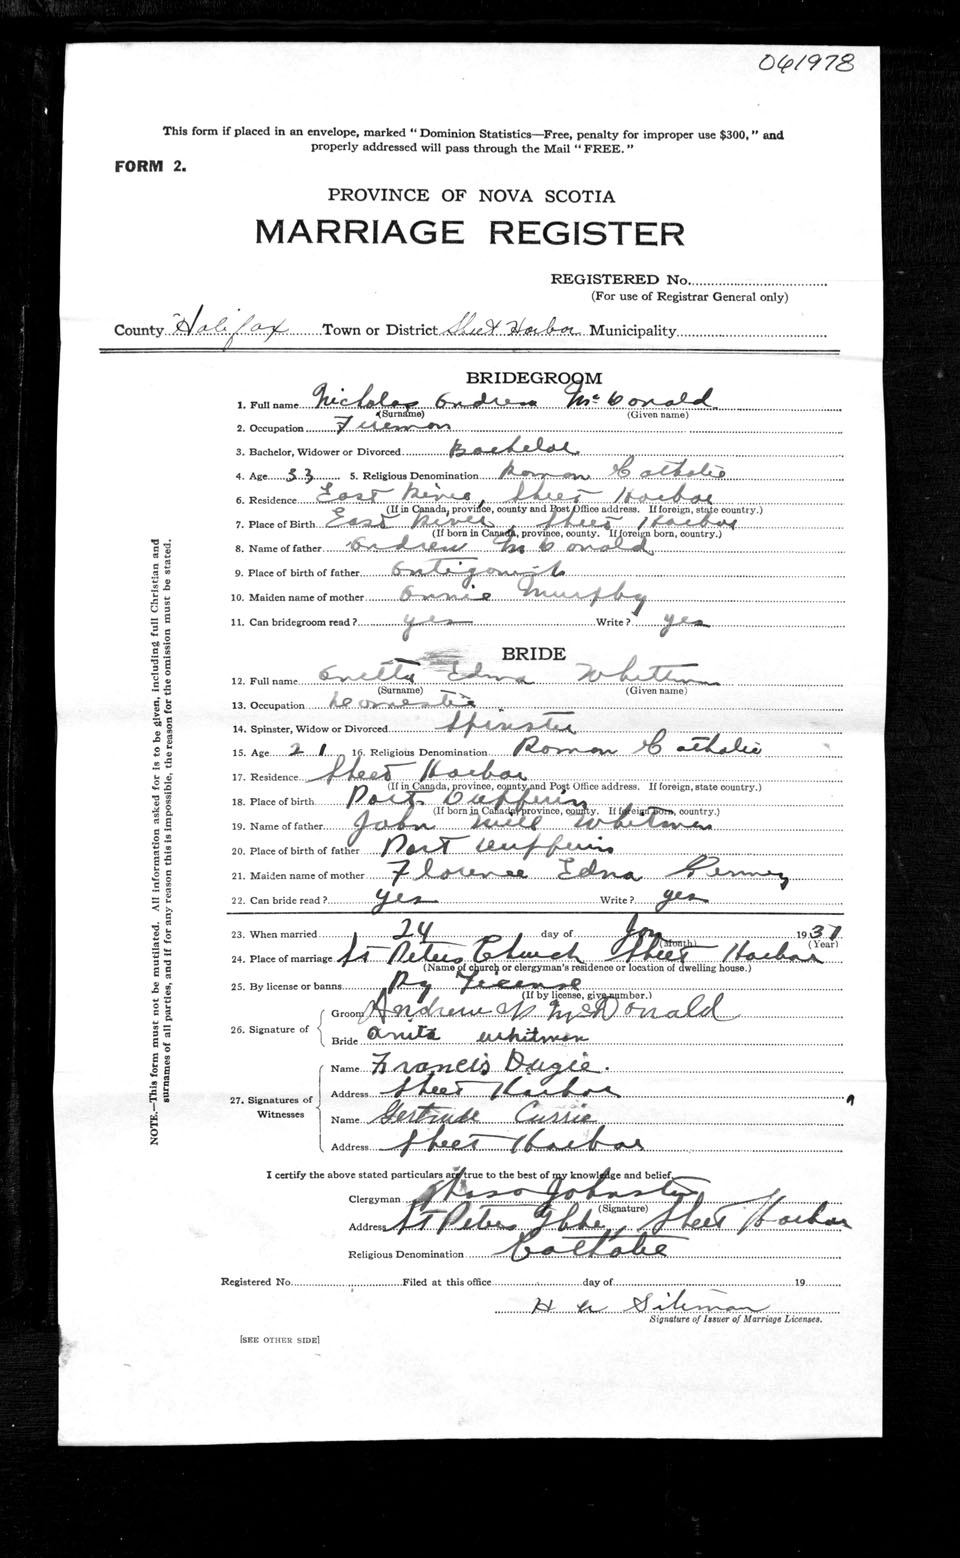 061978
This form if placed in an envelope, marked "Dominion Statistics—Free, penalty for improper use $300," and
properly addressed will pass through the Mail "FREE."
FORM 2.
PROVINCE OF NOVA SCOTIA
MARRIAGE REGISTER
REGISTERED No.
(For use of Registrar General only)
County Halifax Town or District Sheet Harbor Municipality
BRIDEGROOM
1. Full name Nicholas Andrew McDonald
(Surname) (Given name)
2. Occupation Fireman
3. Bachelor, Widower or Divorced Bachelor
4. Age 33 5. Religious Denomination Roman Catholic
6. Residence East River, Sheet Harbor
(If in Canada, province, county and Post Office address. If foreign, state country.)
7. Place of Birth East River, Sheet Harbor
(If born in Canada, province, county. If foreign born, country.)
8. Name of father Andrew McDonald
9. Place of birth of father Antigonish
10. Maiden name of mother Annie Murphy
11. Can bridegroom read? yes Write? yes
BRIDE
12. Full name Edna Whitman
(Surname) (Given name)
13. Occupation Domestic
14. Spinster, Widow or Divorced Spinster
15. Age 21 16. Religious Denomination Roman Catholic
17. Residence Sheet Harbor
(If in Canada, province, county and Post Office address. If foreign, state country.)
18. Place of birth Port Dufferin
(If born in Canada, province, county. If foreign born, country.)
19. Name of father John Will Whitman
20. Place of birth of father Port Dufferin
21. Maiden name of mother Florence Edna
22. Can bride read? yes Write? yes
23. When married 24 day of Jan 1937
(Month) (Year)
24. Place of marriage St Peters Church Sheet Harbor
(Name of church or clergyman's residence or location of dwelling house.)
25. By license or banns By License
(If by license, give number.)
26. Signature of
Groom Andrew N McDonald
Bride Anita Whitman
27. Signatures of Witnesses
Name Francis Dugie.
Address Sheet Harbor
Name Gertrude Currie
Address Sheet Harbor
I certify the above stated particulars are true to the best of my knowledge and belief.
Clergyman Johnston
(Signature)
Address St Peters Glebe, Sheet Harbor
Religious Denomination Catholic
Registered No. Filed at this office day of 19
H W Siteman
Signature of Issuer of Marriage Licenses.
[SEE OTHER SIDE]
NOTE.—This form must not be mutilated. All information asked for is to be given, including full Christian and
surnames of all parties, and if for any reason this is impossible, the reason for the omission must be stated.